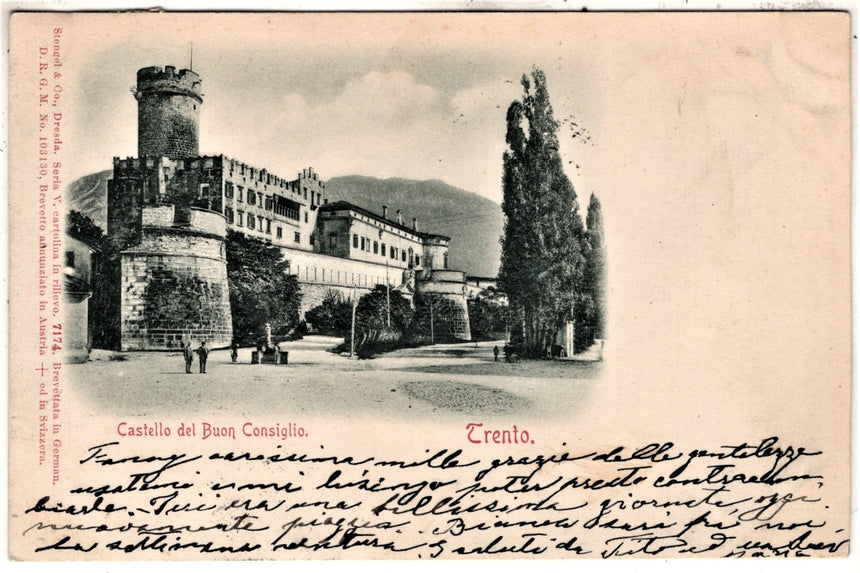 Stengel & Co., Dresda. Seria V. cartolina in rilievo. 7174. Brevettata in German.
D. R. G. M. No. 103130, Brevetto annunziato in Austria + ed in Svizzera.
Castello del Buon Consiglio.
Trento.
Fanny carissima mille grazie delle gentilezze
usatemi e mi lusingo poter presto contraccam-
biarle. Ieri era una bellissima giornata, oggi
nuovamente pioggia. Bianca sarà fra noi
la settimana ventura. Saluti da Tito ed un